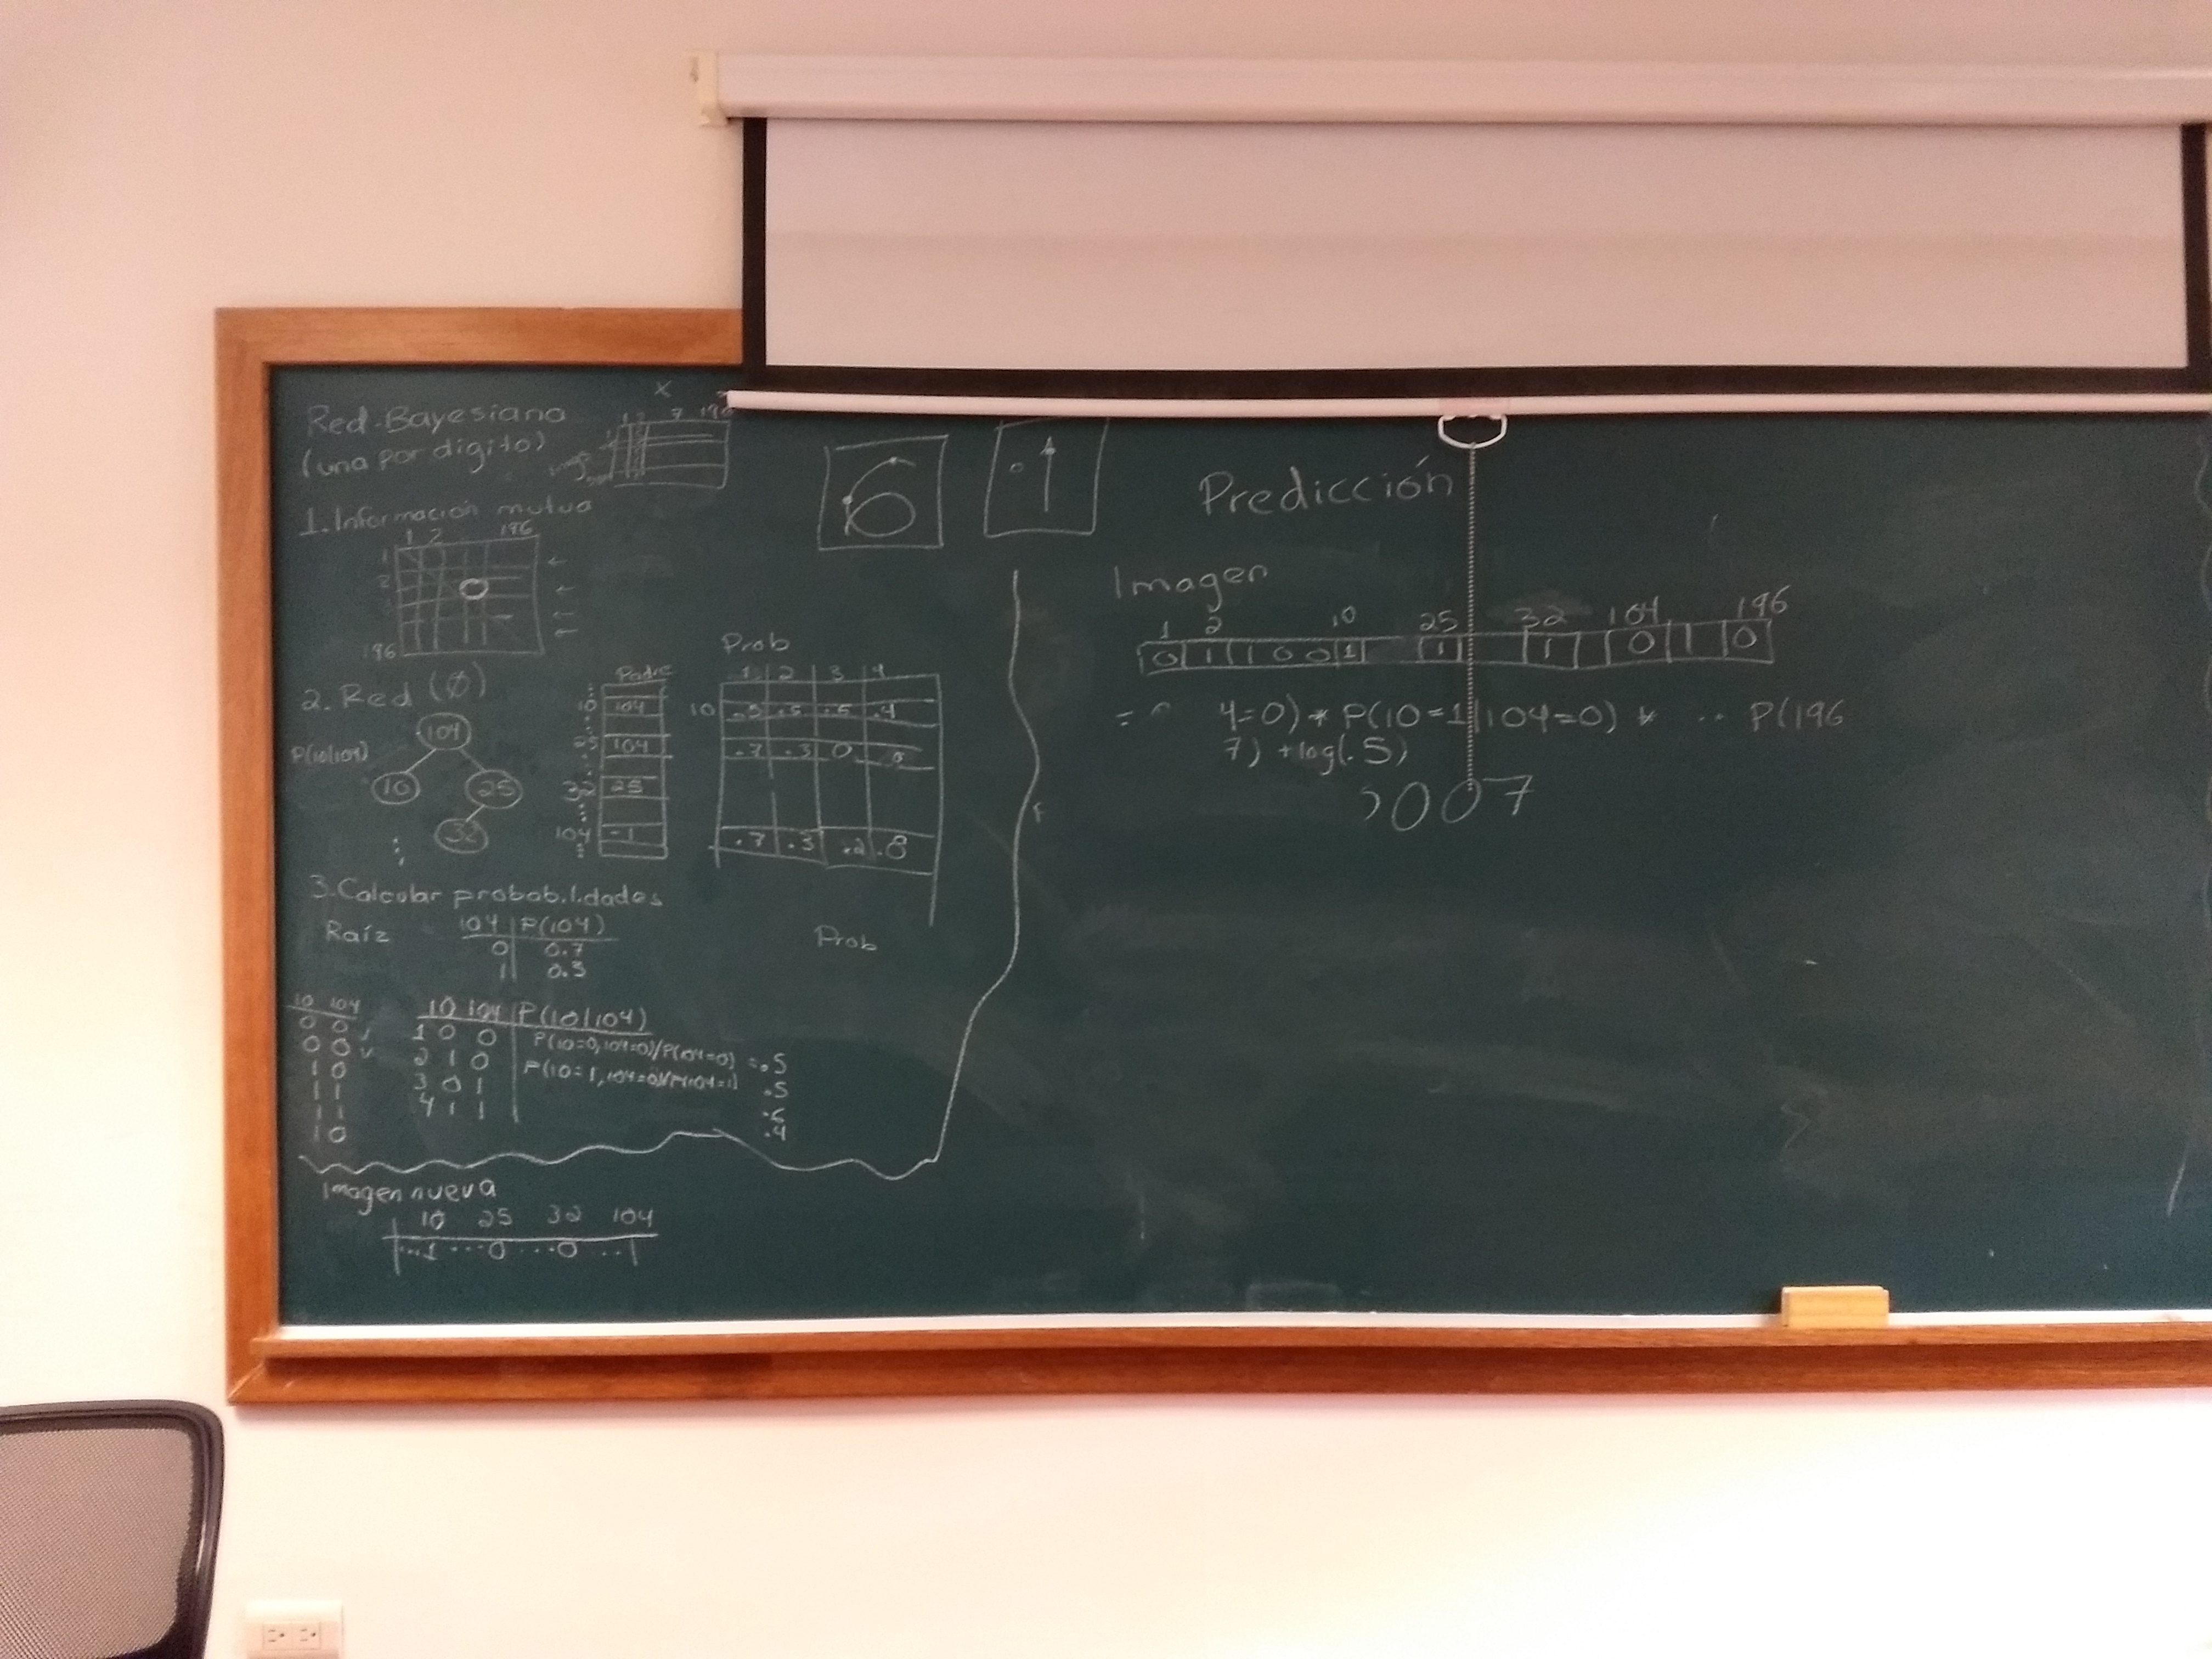 Red Bayesiana
(una por digito)
X
1 2 7 196
1. Informacion mutua
1 2 196
1
2
196
2. Red (Ø)
P(10|104)
104
10 25
32
Padre
10 104
25 104
32 25
104 -1
Prob
1 2 3 4
10 .5 .5 .6 .4
.7 .3 0 0
.7 .3 .2 .8
Prob
3. Calcular probabilidades
Raíz
104 P(104)
0 0.7
1 0.3
10 104
0 0
0 0
1 0
1 1
1 1
1 0
10 104 P(10|104)
1 0 0 P(10=0,104=0)/P(104=0) =.5
2 1 0 P(10=1,104=0)/P(104=1) .5
3 0 1 .6
4 1 1 .4
Imagen nueva
10 25 32 104
...1 ... 0 ... 0 .. 1
6
1
Predicción
Imagen
1 2 10 25 32 104 196
0 1 1 0 0 1 1 1 0 0
= 4=0) * P(10=1|104=0) * .. P(196
7) + log(.5)
007